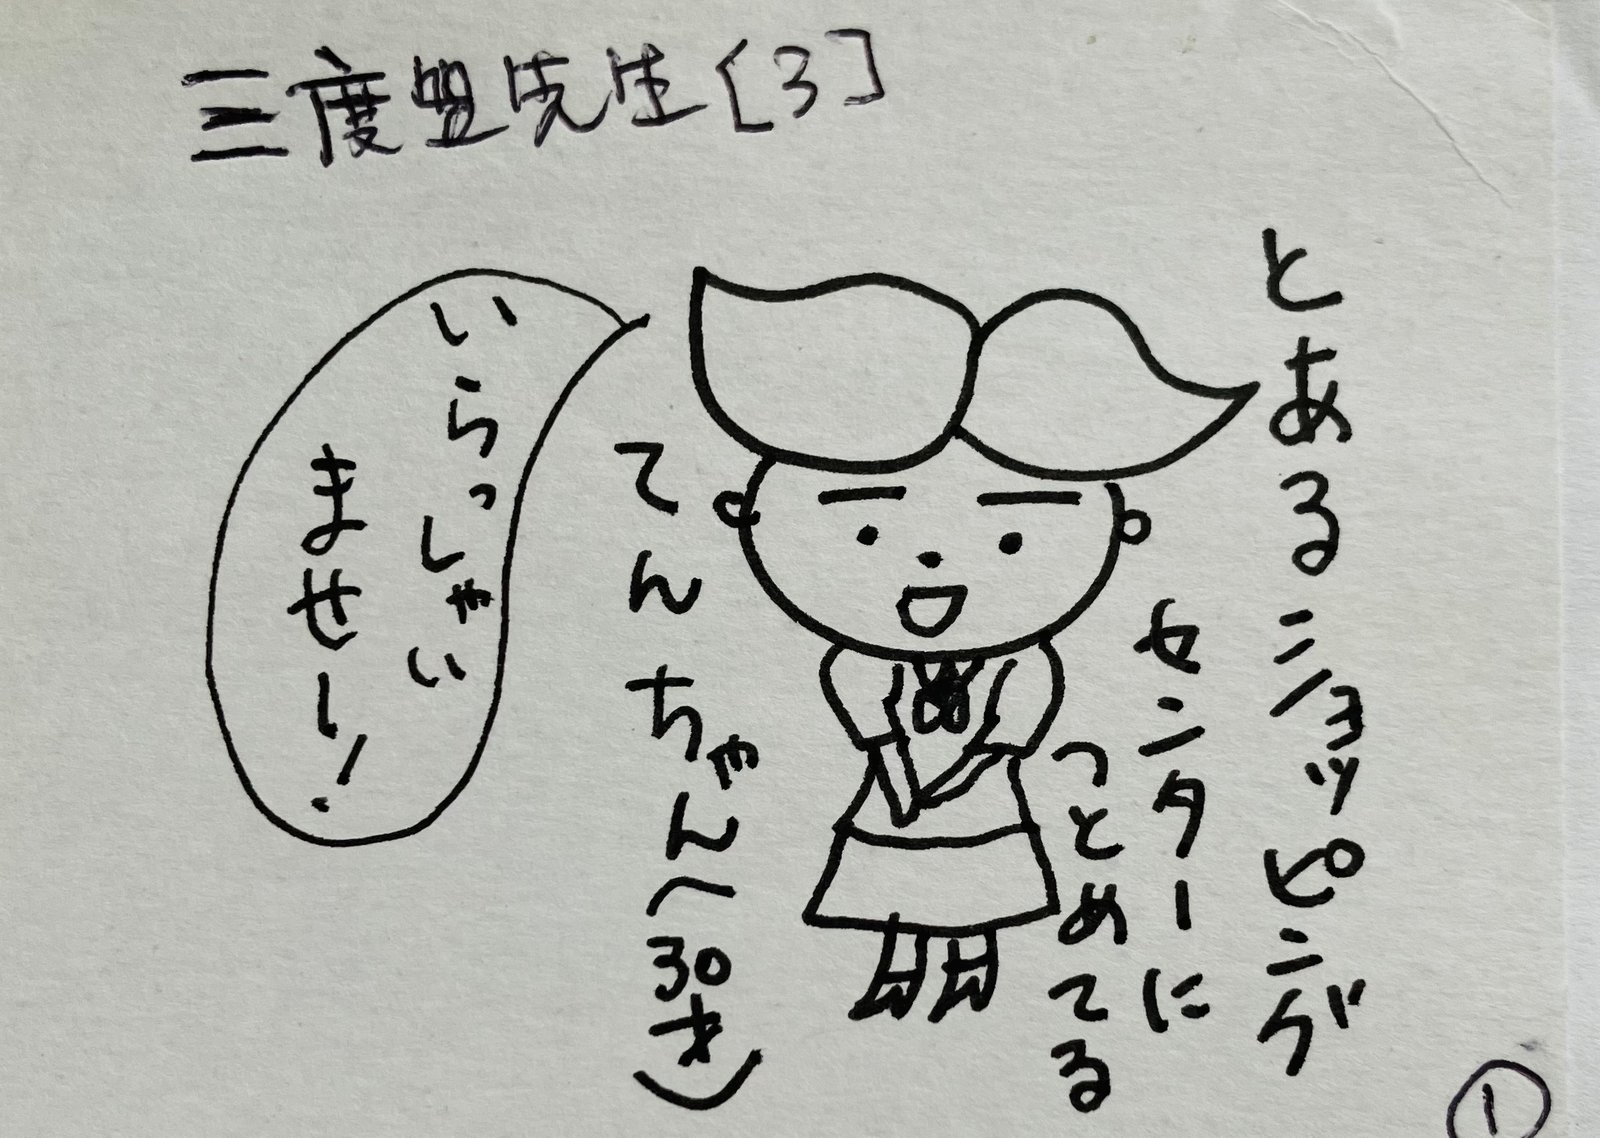 三度盟先生[3]
とあるショッピング
センターに
つとめてる
てんちゃん(30才)
いらっしゃい
ませー!
①